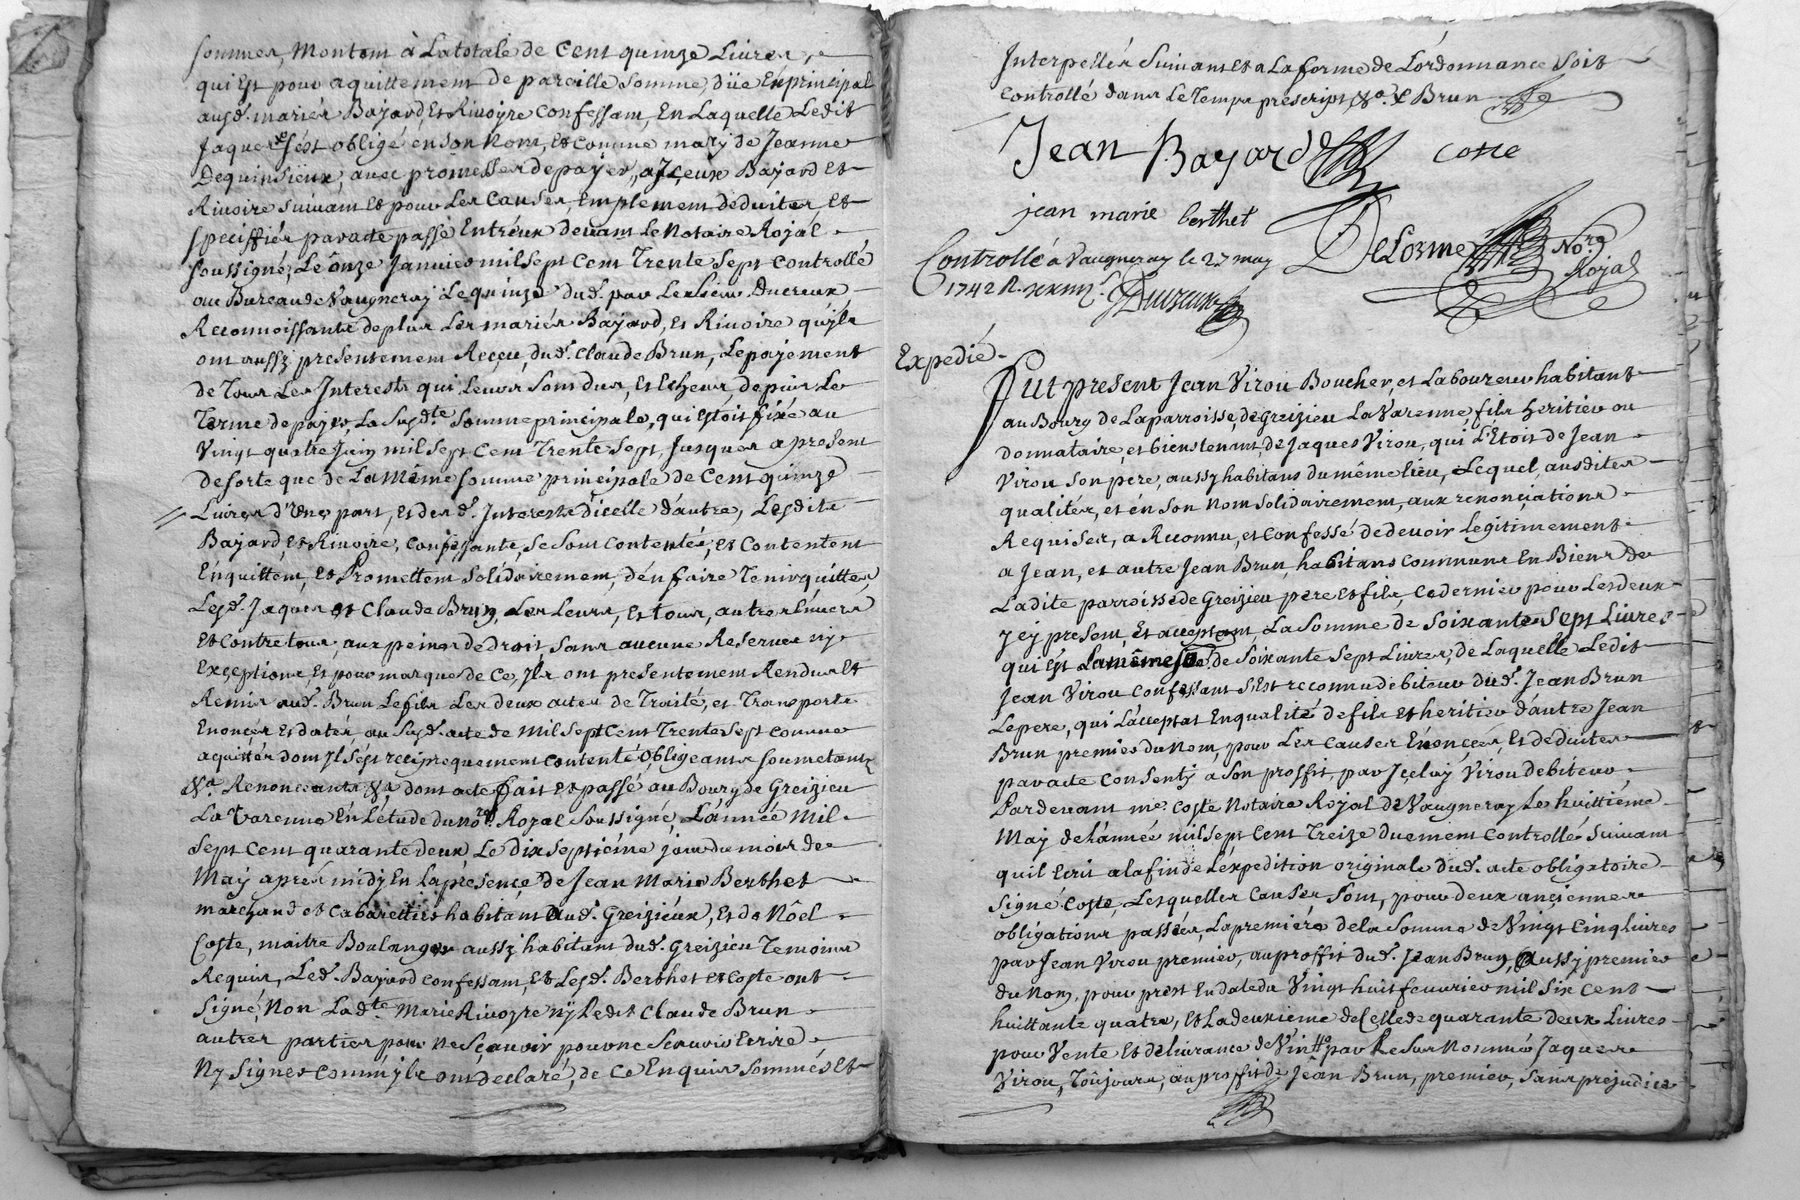 sommes, Montant à La totale de Cent quinze Livres,
qui Est pour aquittement de pareille Somme, düe En principal
ausd. mariés Bajard, Et Rivoyre Confessant, En Laquelle Ledit
Jaques s'ést obligé en son Nom, Et comme mary de Jeanne
Dequinsieux, avec promesses de payer, a Iceux Bajard Et
Rivoire suivant Et pour Les Causes, Emplement deduites, Et
speciffiés par acte passé Entréux devant Le Notaire Rojal
soussigné, Le ônze Janvier mil sept Cent Trente sept Controllé
au Bureau de Vaugneray Le quinze dud. par Le sieur Ducreux
Reconnoissants de plus Les mariés Bajard, Et Rivoire qu'jls
ont aussy presentement Reçeu, dud. Claude Brun, Le payement
de Tous Les Interests qui Leurs sont dus, Et Echeus, depuis Le
Terme de payer, La Susd.te Somme principale, qui Estoit fixé au
Vingt quatre Juin mil sept Cent Trente sept, Jusques a present
de sorte que de La même somme principale de Cent quinze
Livres d'Une part, Et des d. Interests d'icelle d'autre, Lesdits
Bajard, Et Rivoire, Confessants, se sont Contentés, Et Contentent
En quittent, Et Promettent solidairement, d'én faire Tenir quittes,
Lesd. Jaques et Claude Brun, Les Leurs, Et tous, autres Envers
Et Contre tous, aux peines de Droit, sans aucune Reserve nj
Exceptions Et pour marque de Ce, jls ont presentement Rendus Et
Remis aud. Brun Le fils Les deux actes de Traité, et Transports
Enoncés Et datés, au susd. acte de Mil sept Cent Trente sept Comme
aquittés dont jls sest reciproquement Contenté Obligeants soumetants
&a. Renonceants &a dont acte fait Et passé au Bourg de Greizieu
La Varenne En L'étude du no.re Rojal Soussigné, L'année Mil
Sept Cent quarante deux, Le dix septiéme jour du mois de
May aprés midy En La presence de Jean Marie Berthet
marchand et Cabarettier habitant aud. Greizieux, Et de Nôel
Coste, maitre Boulanger aussy habitant dud. Greizieu Temoins
Requis, Led. Bajard Confessant, Et Lesd. Berthet et Coste ont
signé, Non Lad.te Marie Rivoyre nj Ledit Claude Brun
autres parties pour ne sçavoir pour ne Scavoir Ecrire
Ny Signer Comm'jls ont declaré, de Ce Enquis Sommés Et
Interpellés Suivant Et a La forme de L'ordonnance Soit
Controllé dans Le Temps prescript &a. Brun
Jean Bayard Coste
jean marie berthet
Delorme No.re Rojal
Controllé a Vaugneray le 27 may
1742 R.
Ducreux
Expedié
Fut present Jean Virou Boucher, et Laboureur habitant
au Bourg de La parroisse, de Greizieu La Varenne fils heritier ou
donnataire, et bienstenant de Jaques Virou, qui L'Etoit de Jean
Virou Son pere, aussy habitans du même lieu, Lequel ausdites
qualités, et én Son Nom solidairement, aux renonçiations
Requises, a Reconnu, et Confessé de devoir Legitimement
a Jean, et autre Jean Brun, habitans Communs En Biens de
Ladite parroisse de Greizieu pere et fils, Ce dernier pour Les deux
y ey present, Et acceptant, La Somme de Soixante Sept Livres
qui Est La même de Soixante Sept Livres, de Laquelle Ledit
Jean Virou Confessant s'Est reconnu debiteur dud. Jean Brun
Le pere, qui L'acceptat En qualité de fils Et heritier d'autre Jean
Brun premier du Nom, pour Les Causes Enoncées, Et deduites
par acte Consenty a Son proffit, par Jceluy Virou debiteur
Pardevant me. Coste Notaire Rojal de Vaugneray Le huittiéme
May de L'année mil sept Cent Treize duement Controllé suivant
qu'il Ecrit a la fin de L'expedition originale dud. acte obligatoire
Signé Coste, Lesquelles Causes Sont, pour deux ançiennes
obligations passées, La premiére de la Somme de Vingt Cinq Livres
par Jean Virou premier, au proffit dud. Jean Brun, aussy premier
du Nom, pour prest En date du Vingt huit fevrier mil Six Cent
huittante quatre, Et La deuxieme de Celle de quarante deux Livres
pour Vente Et delivrance de Vin par Le sus Nommé Jaques
Virou, Toûjours, au proffit de Jean Brun, premier, Sans prejudice